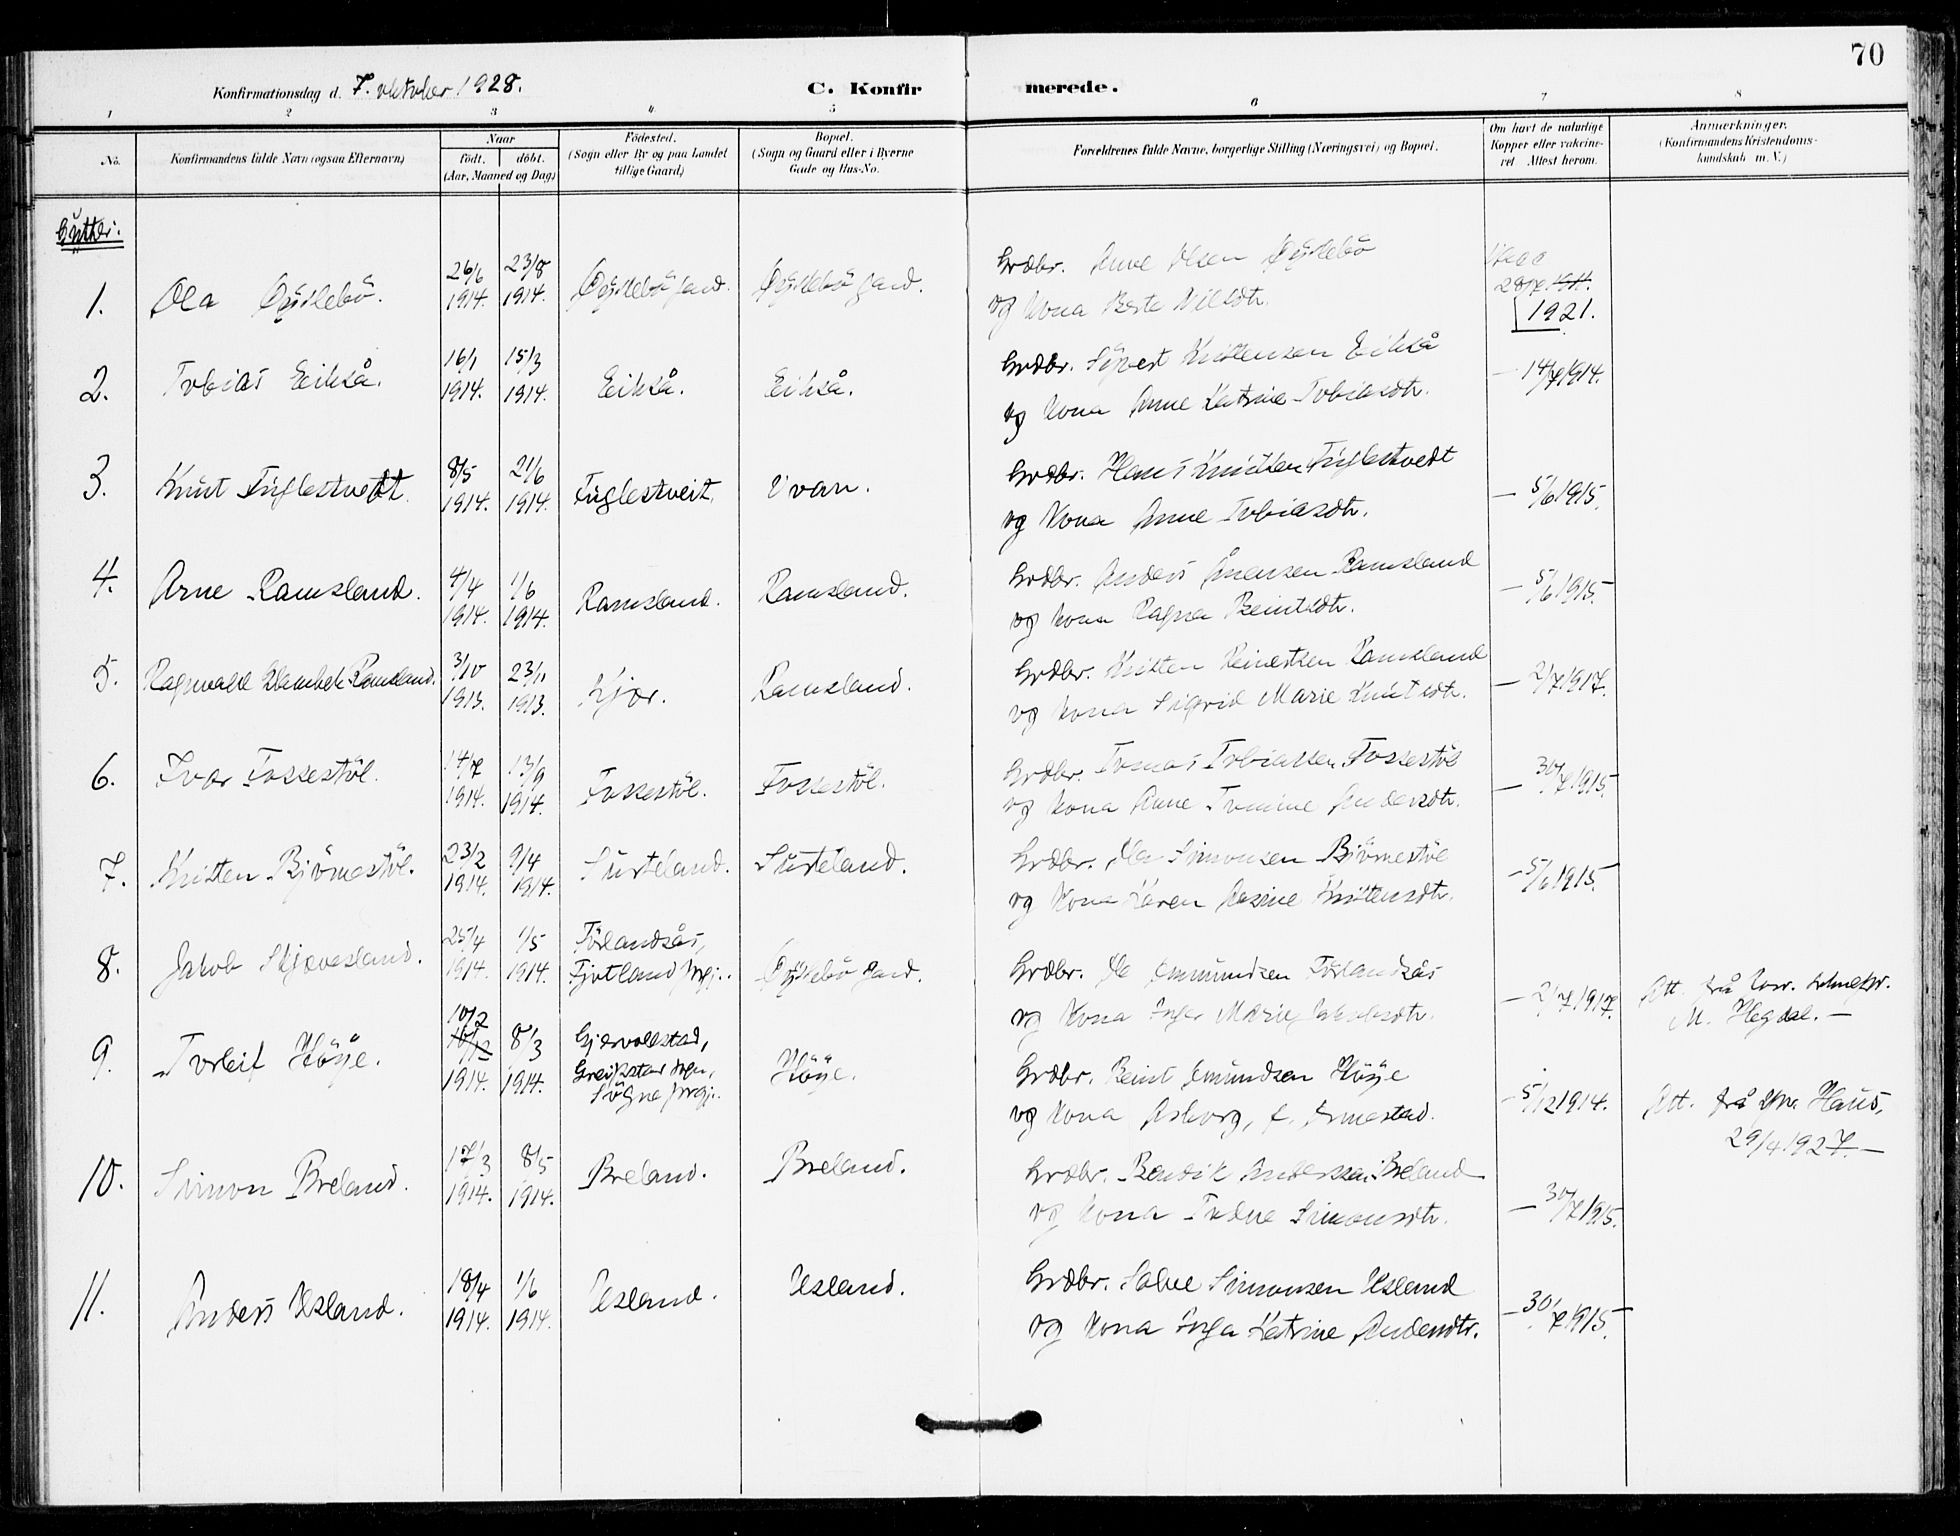 70
Konfirmationsdag d. 7. oktober 1928. C. Konfir merede.
1 2 3 4 5 6 7 8
No. Konfirmandens fulde Navn (ogsaa Efternavn) Naar födt. döbt. (Aar, Maaned og Dag)
Födested. (Sogn eller By og paa Landet tillige Gaard)
Bopæl. (Sogn og Gaard eller i Byerne Gade og Hus-No.
Forældrenes fulde Navne, borgerlige Stilling (Næringsvei) og Bopæl.
Om havt de naturlige Kopper eller vakcineret Attest herom.
Anmærkninger. (Konfirmandens Kristendomskundskab m. V.)
Gutter:
1. Ola Øyslebö. 26/6 1914. 23/8 1914. Øyslebö gard. Øyslebö gard. Grdbr. Anve Olsen Øyslebö
og kona Berte Nilsdtr. 28/7 1921.
2. Tobias Eikså. 16/1 1914. 15/3 1914. Eikså. Eikså. Grdbr. Sigvert Kristensen Eikså
og kona Anne Katrine Tobiasdtr. — 14/7 1914.
3. Knut Fuglestvedt. 8/5 1914. 21/6 1914. Fuglestveit. Uvan. Grdbr. Hans Knutsen Fuglestvedt
og kona Anne Tobiasdtr. — 5/6 1915.
4. Arne Ramsland. 4/4 1914. 1/6 1914. Ramsland. Ramsland. Grdbr. Anders Ånensen Ramsland
og kona Ragna Reinertsdtr. — 5/6 1915.
5. Ragnvald Ramsland. 3/10 1913. 23/11 1913. Kjær. Ramsland. Grdbr. Kristen Reinertsen Ramsland
og kona Sigrid Marie Knutsdtr. — 2/7 1917.
6. Ivar Fossestöl. 14/7 1914. 13/9 1914. Fossestöl. Fossestöl. Grdbr. Tomas Tobiassen Fossestöl
og kona Anne Tomine Andersdtr. — 30/7 1915.
7. Kristen Björnestöl. 23/2 1914. 9/4 1914. Surteland. Surteland. Grdbr. Ola Simonsen Björnestöl
og kona Karen Rasine Kristensdtr. — 5/6 1915.
8. Jakob Skjævesland. 25/4 1914. 1/5 1914. Förlandsås, Fjotland prgj. Øyslebö gard. Grdbr. Ole Åmundsen Förlandsås
og kona Inger Marie Jakobsdtr. — 2/7 1917. Att. frå M. Hegdal. —
9. Torleif Höye. 10/2 1914. 8/3 1914. Gjervollstad, Greipstad sogn, Sögne prgj. Höye. Grdbr. Reint Åmundsen Höye
og kona Asborg, f. Urnestad. — 5/12 1914. Att. frå Haus, 29/4 1927. —
10. Simon Breland. 17/3 1914. 8/5 1914. Breland. Breland. Grdbr. Bendik Anderssen Breland
og kona Simonsdtr. — 30/7 1915.
11. Anders Usland. 18/4 1914. 1/6 1914. Usland. Usland. Grdbr. Salve Simonsen Usland
og kona Inga Katrine Andersdtr. — 30/7 1915.